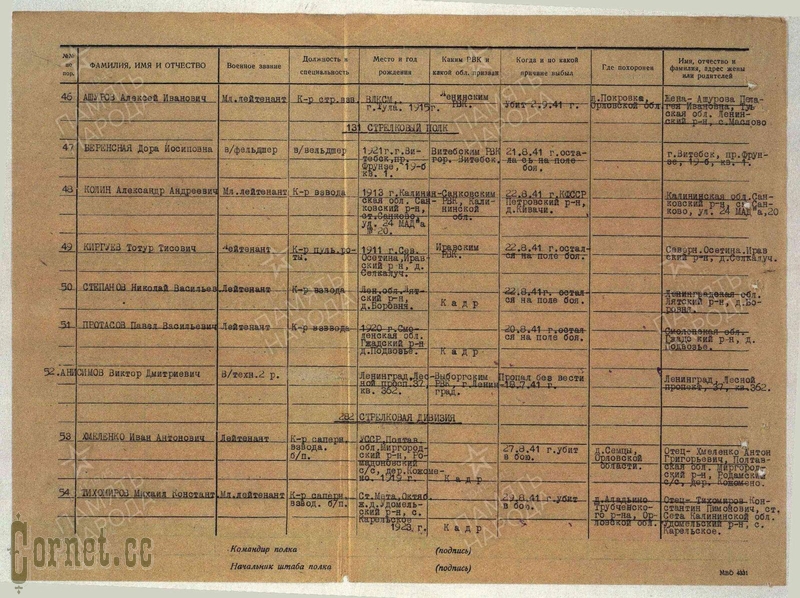 №№ по пор. ФАМИЛИЯ, ИМЯ И ОТЧЕСТВО Военное звание Должность и специальность Место и год рождения Каким РВК и какой обл. призван Когда и по какой причине выбыл Где похоронен Имя, отчество и фамилия, адрес жены или родителей
46 АШУРОВ Алексей Иванович Мл.лейтенант К-р стр.взв. ВЛКСМ, г.Тула. 1915г. Ленинским РВК. Убит 2.9.41 г. д.Покровка, Орловской обл. Жена- Ашурова Пелагея Ивановна, Тульская обл. Ленинский р-н, с.Маслово
131 СТРЕЛКОВЫЙ ПОЛК
47 ВЕРЕНСКАЯ Дора Иосиповна в/фельдшер в/фельдшер 1921г.г.Витебск,пр. Фрунзе, 19-б кв. 1. Витебским РВК гор. Витебск. 21.8.41 г. осталась на поле боя. г.Витебск, пр.Фрунзе, 19-б, кв. 1.
48 Александр Андреевич Мл.лейтенант К-р взвода 1913 г.Калининская обл. Санковский р-н, ст.Санково, ул. 24 МАДᵃа № 20. Санковским РВК, Калининской обл. 22.8.41 г.КФССР Петровский р-н, д.Кивачи. Калининская обл.Санковский р-н, ст.Санково, ул. 24 МАД"а,20
49 КИРГУЕВ Тотур Тисович Лейтенант К-р пуль.роты. 1911 г.Сев. Осетина,Иравский р-н, д. Селкалуч. Иравским РВК. 22.8.41 г.остался на поле боя. Северн.Осетина,Иравский р-н, д.Селкалуч.
50 СТЕПАНОВ Николай Васильев Лейтенант К-р взвода Лен.обл.Лятский р-н, д.Боровня. Кадр 22.8.41г. остался на поле боя. Ленинградовская обл. Лятский р-н, д.Боровня.
51. ПРОТАСОВ Павел Васильевич Лейтенант К-р взввода 1920 г.Смоленская обл. Гжадский р-н д.Подвозье. Кадр 20.8.41 г.остался на поле боя. Смоленская обл. Гжадский р-н, д. Подвозье.
52.АНИСИМОВ Виктор Дмитриевич В/техн.2 р. Ленинград,Лесной просп.37 кв. 362. Выборгским РВК, г.Ленин- Пропал без вести 18.7.41 г. Ленинград, Лесной проспект, 37, кв.362.
282 СТРЕЛКОВАЯ ДИВИЗИЯ
53 ХМЕЛЕНКО Иван Антонович Лейтенант К-р саперн. взвода. б/п. УССР,Полтав. обл.Миргородский р-н, с/с, дер. 1919 г. Кадр 27.8.41 г.убит в бою. д.Семцы, Орловской области. Отец- Хмеленко Антон Григорьевич, Полтавская обл. Миргородский р-н, с/с, дер.
54 ТИХОМИРОВ Михаил Констант. Мл.лейтенант К-р саперн. взвод. б/п. Ст.Мета,Октяб. ж.д.Удомельский р-н, с. Карельское 1923,г. Кадр 29.8.41 г.убит в бою. Трубченского р-на, Орловской обл. Отец- Тихомиров Константин Пимонович, ст. Сета Калининской обл. Удомельский р-н, с. Карельское.
Командир полка (подпись)
Начальник штаба полка (подпись)
ПАМЯТЬ НАРОДА
Cornet.cc